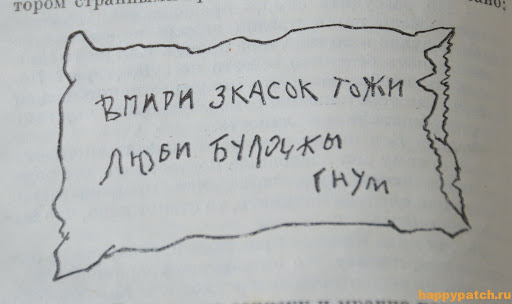 тором странными
ано:
ВПИРИ ЗКАСОК ТОЖИ
ЛЮБИ БУЛОЧКЫ
ГНУМ
happypatch.ru